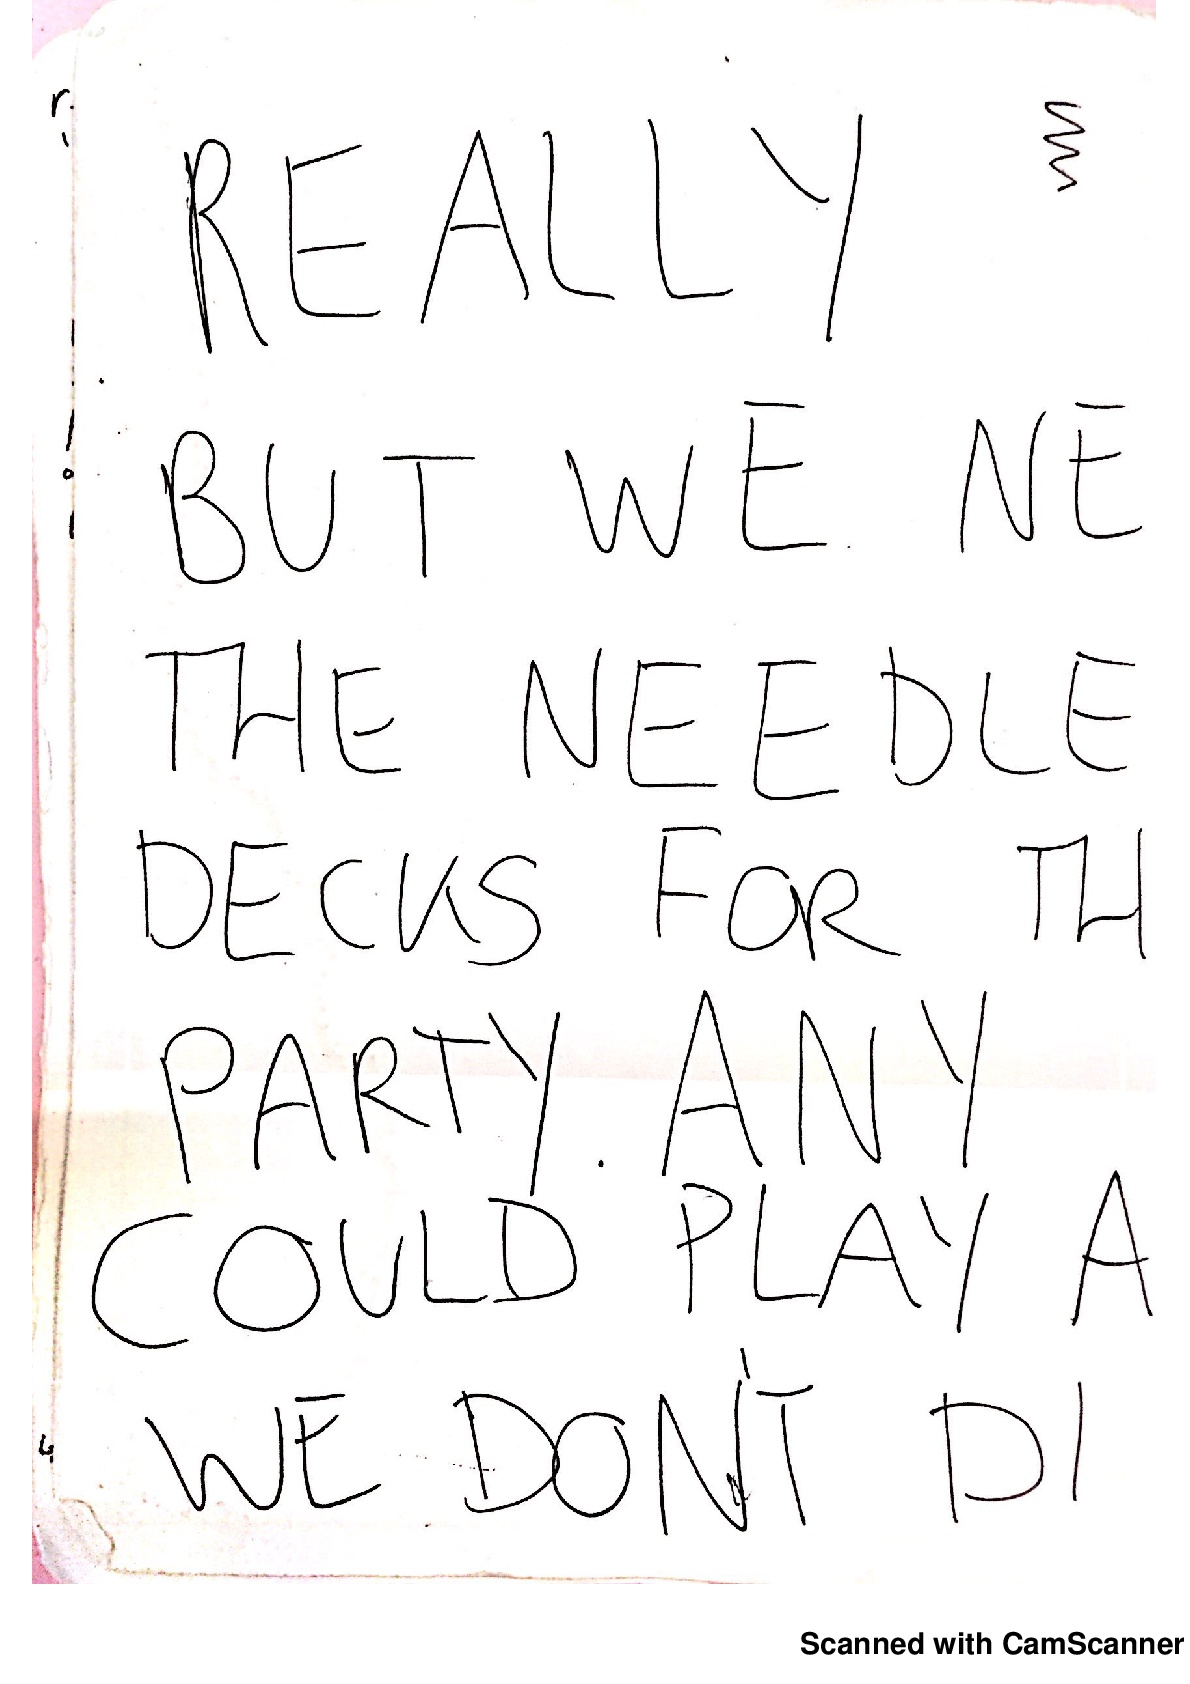 REALLY
BUT WE NE
THE NEEDLE
DECKS FOR TH
PARTY. ANY
COULD PLAY A
WE DON'T DI
Scanned with CamScanner